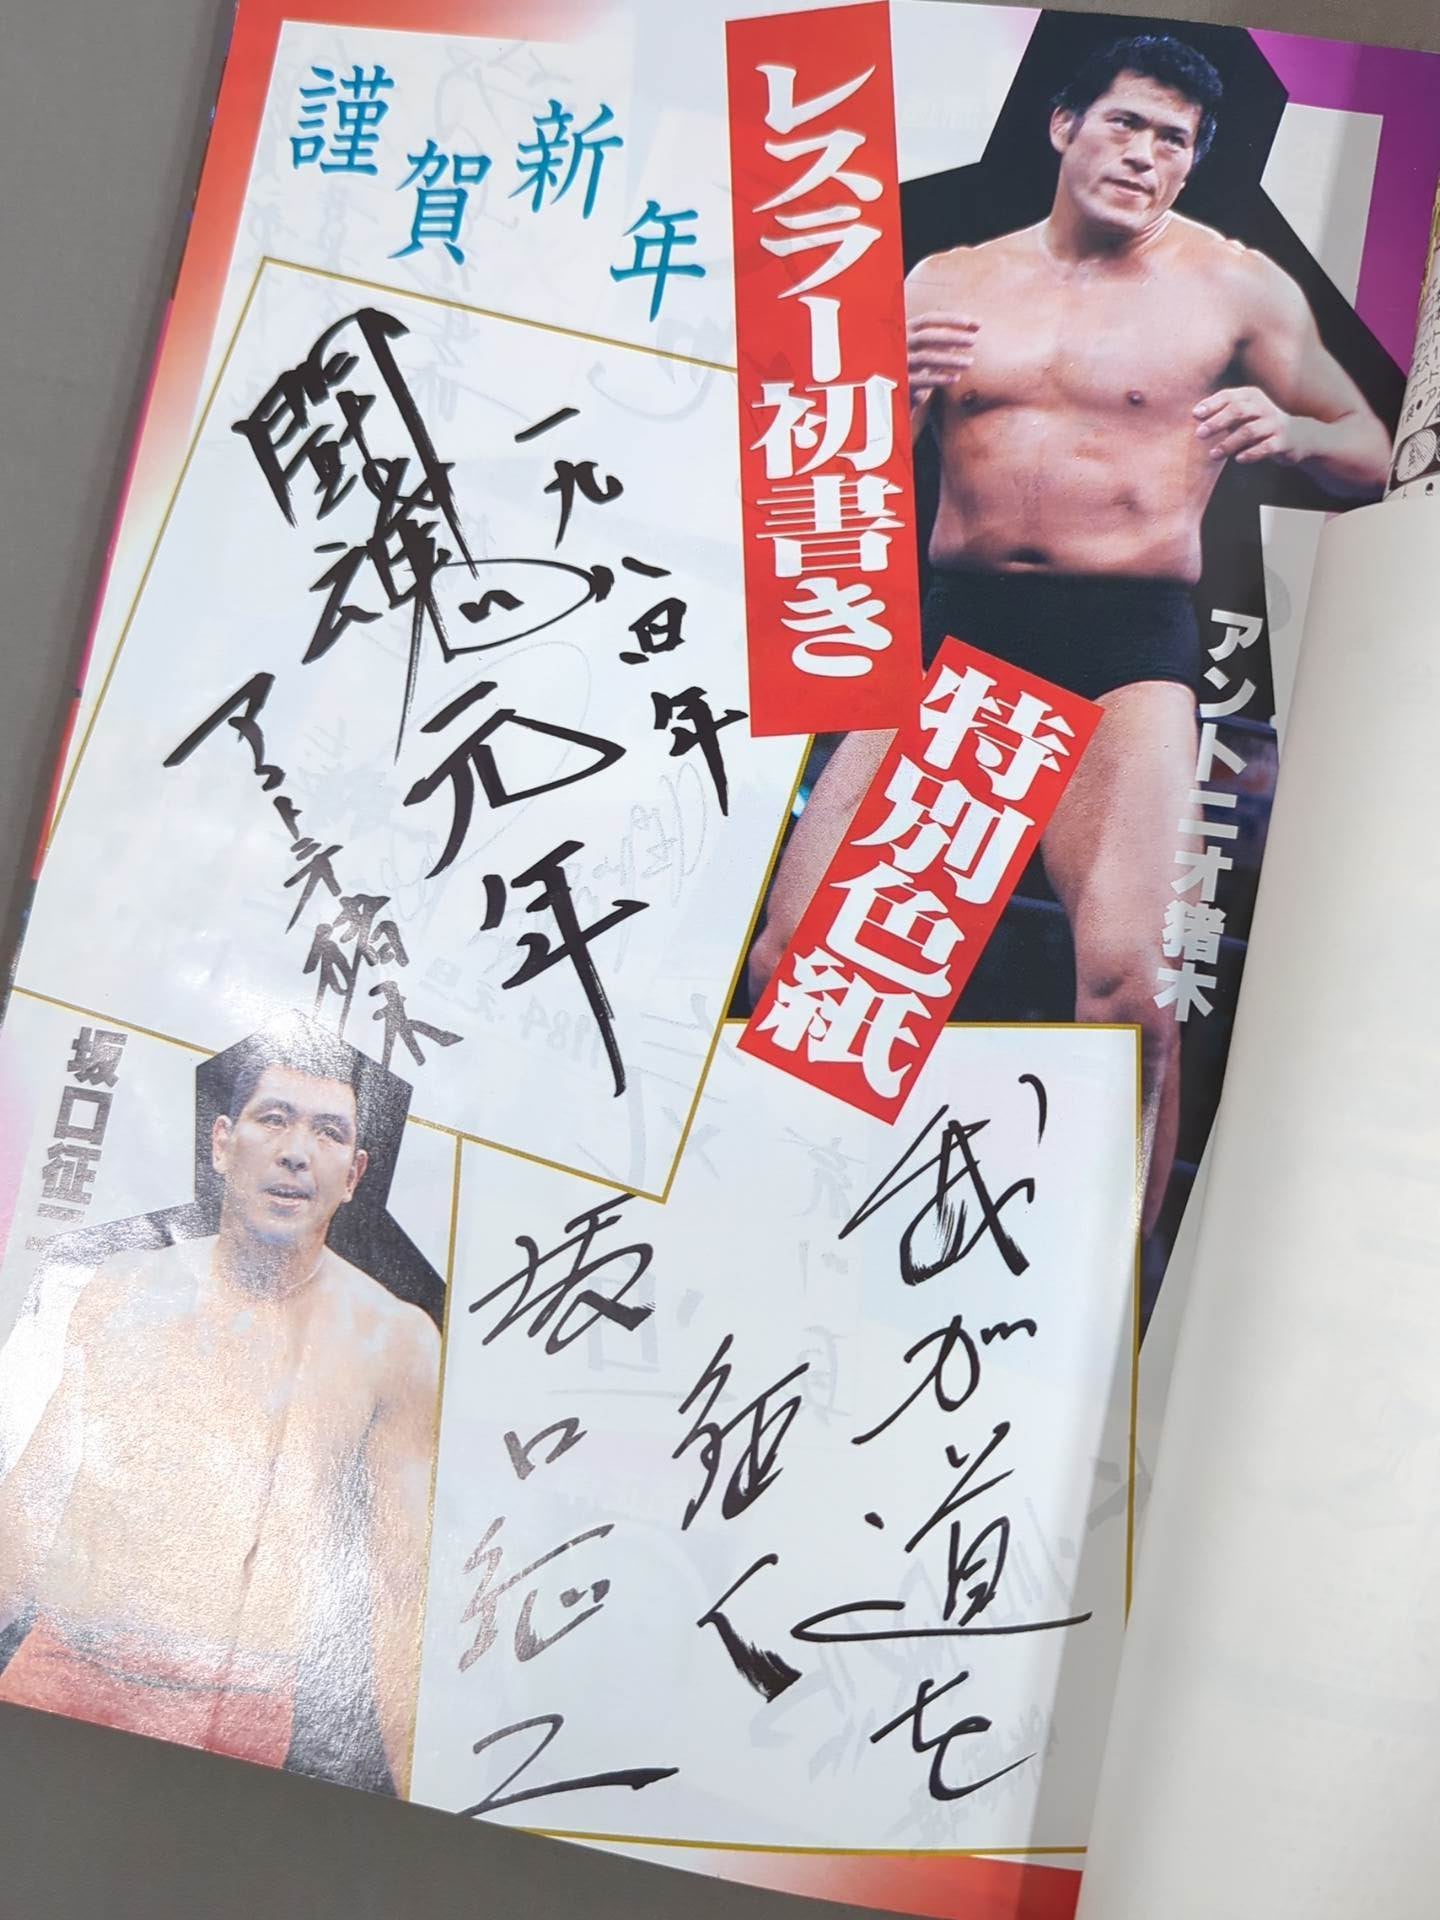 謹賀新年
レスラー初書き
特別色紙
アントニオ猪木
一九八四年
闘魂
元年
アントニオ猪木
坂口征二
我が道を
征く
坂口征二